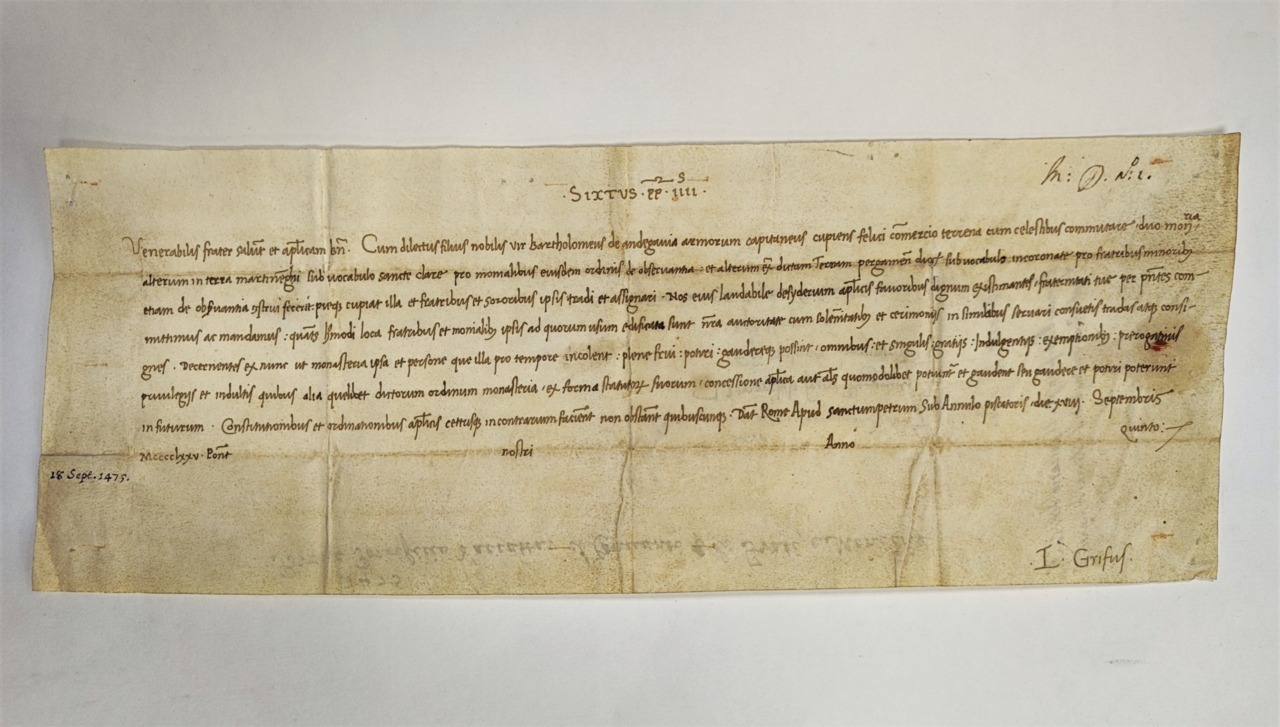 M: D. n.° 1.
S
·SIXTUS·PP·IIII·
Venerabilis frater salut̄ et apl̄icam bn̄. Cum dilectus filius nobilis vir Bartholomeus de andegavia armorum capitaneus cupiens felici cōmercio terrena cum celestibus commutare · duo monria
alterum in terra martinenghi sub vocabulo sancte clare pro monialibus eiusdem ordinis de observantia : et alterum ex̄ dictam Terram pergamen̄ dioc̄ sub vocabulo incoronate pro fratribus minoribꝫ
etiam de obſvantia ostrui fecerit preqꝫ cupiat illa et fratribus et sororibus ipsis tradi et assignari · Nos eius laudabile desyderium apl̄icis favoribus dignum existimantes · fraternitati tue per pn̄tes com
mittimus ac mandamus : quat̄s hmōdi loca fratribus et monialibꝫ ipsis ad quorum usum edificata sunt nr̄a auctoritate cum solen̄itatibꝫ et cerimonijs in similibus servari consuetis tradas atqꝫ consi-
gnes · Decernentes ex nunc ut monasteria ipsa et persone que illa pro tempore incolent : plene frui : potiri : gaudereqꝫ possint · omnibus : et singulis : gratijs : Indulgentijs : exemptionibꝫ : prerogativis
privilegijs et indultis quibus alia quelibet dictorum ordinum monasteria · ex forma statutoꝝ suorum · concessione apl̄ica aut al̄s quomodolibet potiunt̄ et gaudent seu gaudere et potiri poterunt
in futurum · Constitutionibus et ordinationibus apl̄icis ceterisqꝫ in contrarium facient̄ non obstant̄ quibuscunqꝫ · Dat̄ Rome Apud sanctumpetrum Sub Annulo piscatoris · die xviii · Septembris
Mcccclxxv · Pont̄ nostri Anno Quinto:
18 Sept. 1475.
·L· Grifus·